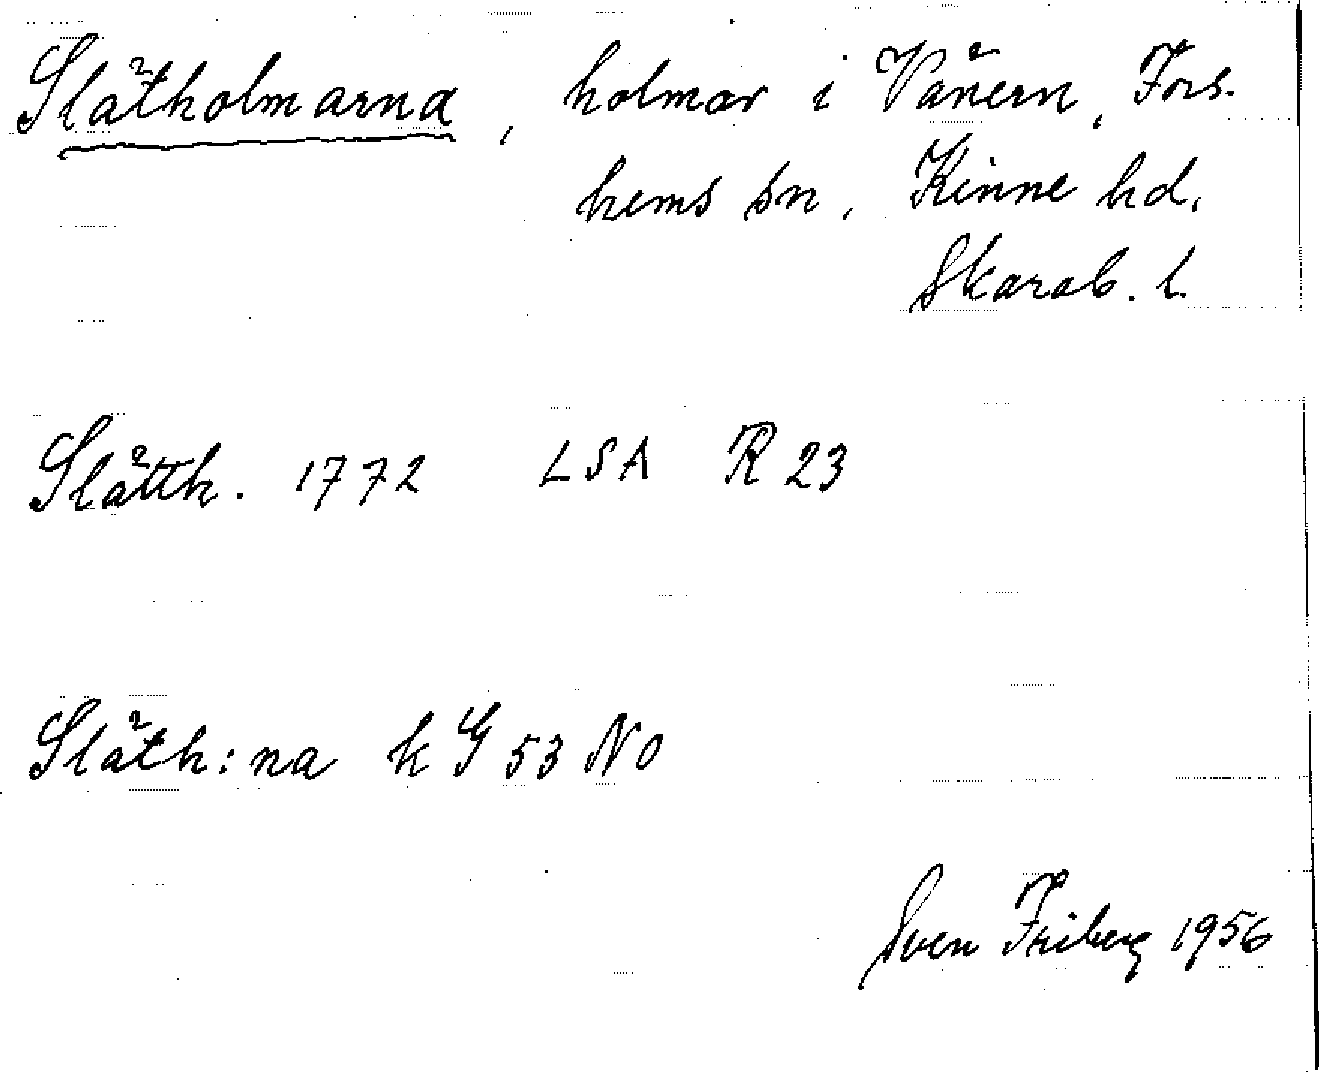 Slätholmarna, holmar i Vänern, Fors-
hems sn, Kinne hd,
Skarab. l.
Slätth. 1772 LSA R 23
Släth:na k G 53 NO
Sven Friberg 1956